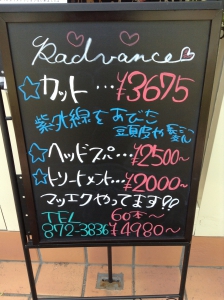 Radvance
カット…¥3675
紫外線をあびた
頭皮や髪に
ヘッドスパ…¥2500〜
トリートメント…¥2000〜
マツエクやってます!!
TEL 60本〜
872-3836 ¥4980〜